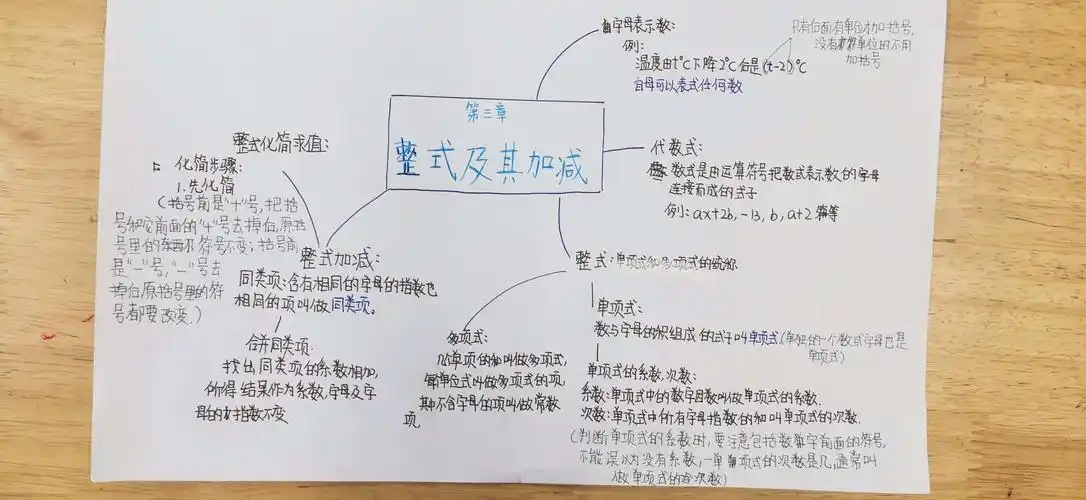 第三章
整式及其加减
字母表示数:
例:
温度由t°C下降2°C后是(t-2)°C
自母可以表式任何数
只有后面有单位才加括号,
没有单位的不用
加括号
代数式:
数式是由运算符号把数或表示数的字母
连接而成的式子
例: ax+2b, -13, b, a+2 等
整式:单项式和多项式的统称
单项式:
数与字母的积组成的式子叫单项式(单独的一个数或字母也是
单项式)
单项式的系数,次数:
系数:单项式中的数字因数叫做单项式的系数.
次数:单项式中所有字母指数的和叫单项式的次数.
(判断单项式的系数时,要注意包括数字前面的符号,
不能误以为没有系数,一单项式的次数是几,通常叫
做单项式的次数)
多项式:
几单项的和叫做多项式,
每单位式叫做多项式的项,
其中不含字母的项叫做常数
项
整式加减:
同类项:含有相同的字母的指数也
相同的项叫做同类项。
合并同类项:
找出同类项的系数相加,
所得结果作为系数,字母及字
母的指数不变
整式化简求值:
化简步骤:
1.先化简
(括号前是"+"号,把括
号和它前面的"+"号去掉后,原括
号里的符号不变;括号前
是"-"号,"-"号去
掉后原括号里的符
号都要改变.)